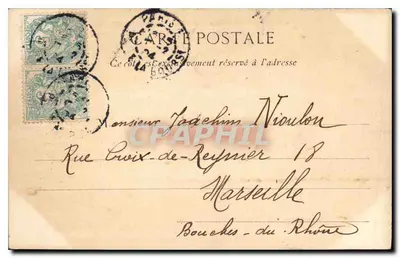 CARTE POSTALE
Ce côté est exclusivement réservé à l'adresse
PARIS
LA BOURSE
Monsieur Joachim Nioulon
CPAPHIL
Rue Croix-de-Reynier 18
Marseille
Bouches-du-Rhône